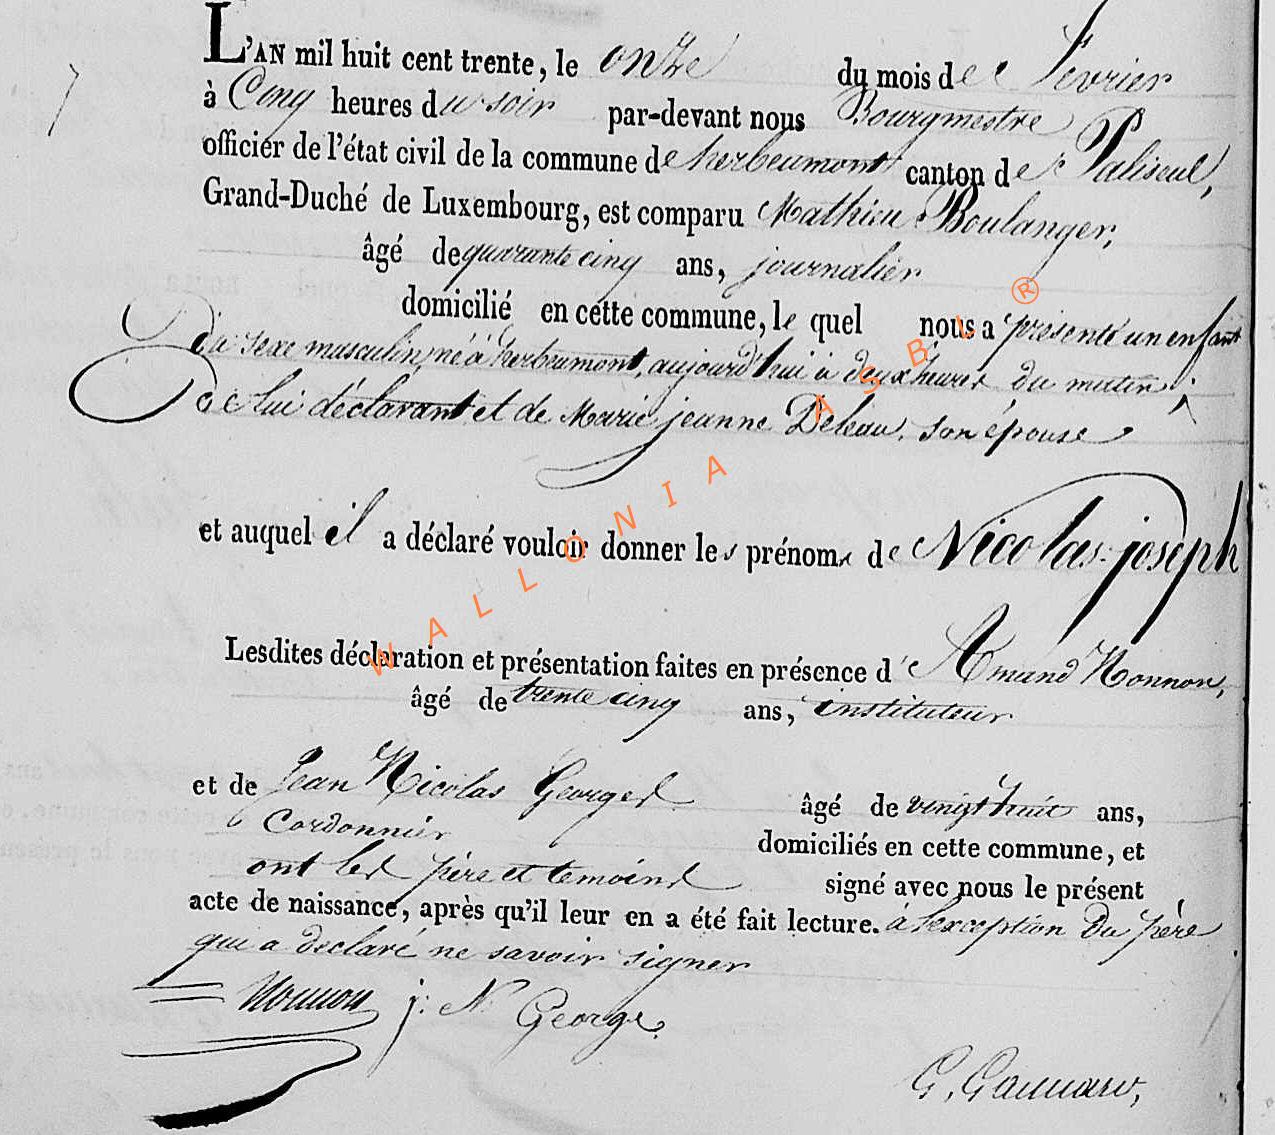 L'AN mil huit cent trente, le onze du mois de fevrier
à Cinq heures du soir par-devant nous Bourgmestre
officier de l'état civil de la commune de herbeumont canton de Paliseul,
Grand-Duché de Luxembourg, est comparu Mathieu Boulanger,
âgé de quarante cinq ans, journalier
domicilié en cette commune, le quel nous a présenté un enfant
du sexe masculin, né à herbeumont, aujourd'hui à deux heures du matin,
de lui déclarant et de Marie jeanne Deleau, son épouse
et auquel il a déclaré vouloir donner les prénoms de Nicolas-joseph
Lesdites déclaration et présentation faites en présence d' Amand Nonnon,
âgé de trente cinq ans, instituteur
et de Jean Nicolas Georges âgé de vingt huit ans,
Cordonnier
domiciliés en cette commune, et
ont les père et temoins signé avec nous le présent
acte de naissance, après qu'il leur en a été fait lecture. à l'exception du père
qui a declaré ne savoir signer
Nonnon j: N. George.
WALLONIA ASBL ®